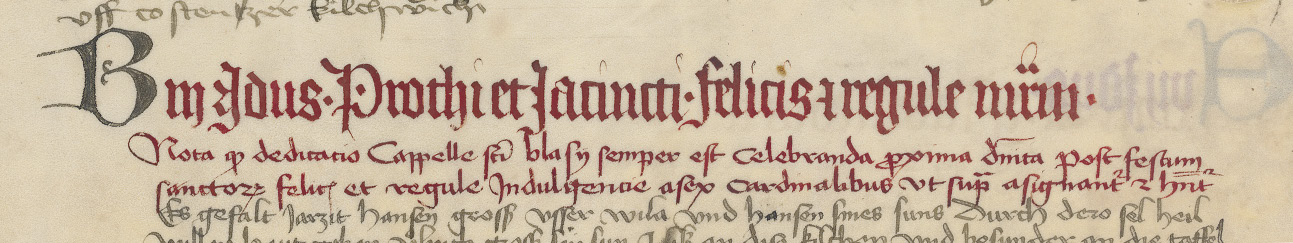 uff costentzer kilchwichi
B iii Idus · Prothi et Jacincti · felicis ⁊ regule mr̄m ·
Nota ꝙ dedicatio Cappelle sc̄i blasy semper est Celebranda ꝓxima dn̄ica post festum
sanctorꝝ felic̄ et regule Indulgencie a sex Cardinalibus vt sup̄ asignant᷑ ⁊ hn̄t᷑
Es gefalt Jarzit hansen gross usser wila vnd hansen sines suns durch dero sel heil
kilchen vnd besunder an die